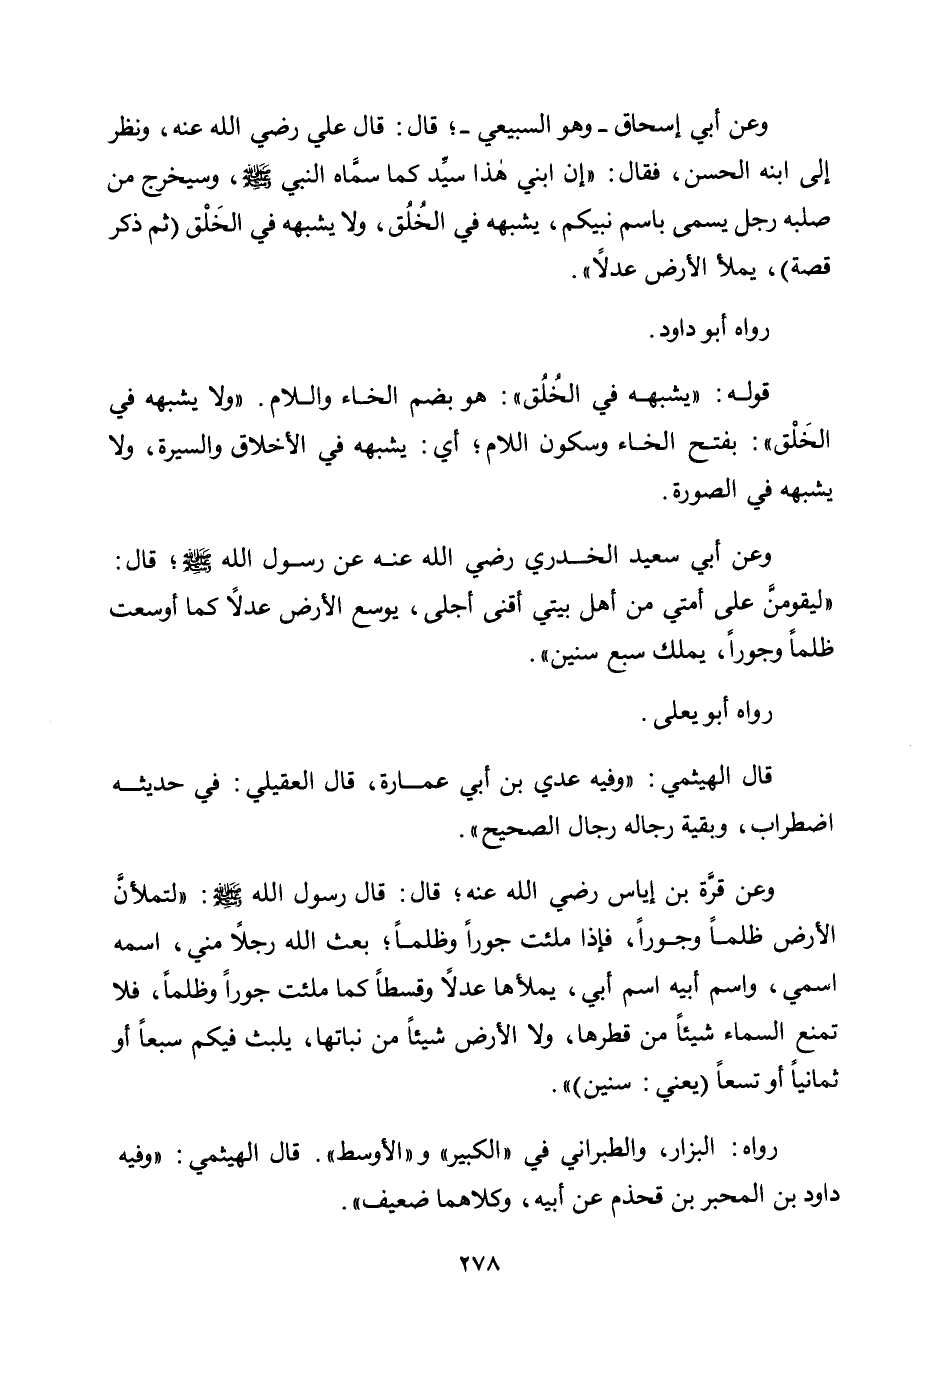 وعن أبي إسحاق ـ وهو السبيعي ـ؛ قال: قال علي رضي الله عنه، ونظر
إلى ابنه الحسن، فقال: «إن ابني هٰذا سيِّد كما سمَّاه النبي ﷺ، وسيخرج من
صلبه رجل يسمى باسم نبيكم، يشبهه في الخُلُق، ولا يشبهه في الخَلْق (ثم ذكر
قصة)، يملأ الأرض عدلًا».
رواه أبو داود.
قوله: «يشبهه في الخُلُق»: هو بضم الخاء واللام. «ولا يشبهه في
الخَلْق»: بفتح الخاء وسكون اللام؛ أي: يشبهه في الأخلاق والسيرة، ولا
يشبهه في الصورة.
وعن أبي سعيد الخدري رضي الله عنه عن رسول الله ﷺ؛ قال:
«ليقومنَّ على أمتي من أهل بيتي أقنى أجلى، يوسع الأرض عدلًا كما أوسعت
ظلماً وجوراً، يملك سبع سنين».
رواه أبو يعلى.
قال الهيثمي: «وفيه عدي بن أبي عمارة، قال العقيلي: في حديثه
اضطراب، وبقية رجاله رجال الصحيح».
وعن قرَّة بن إياس رضي الله عنه؛ قال: قال رسول الله ﷺ: «لتملأنَّ
الأرض ظلماً وجوراً، فإذا ملئت جوراً وظلماً؛ بعث الله رجلًا مني، اسمه
اسمي، واسم أبيه اسم أبي، يملأها عدلًا وقسطاً كما ملئت جوراً وظلماً، فلا
تمنع السماء شيئاً من قطرها، ولا الأرض شيئاً من نباتها، يلبث فيكم سبعاً أو
ثمانياً أو تسعاً (يعني: سنين)».
رواه: البزار، والطبراني في «الكبير» و«الأوسط». قال الهيثمي: «وفيه
داود بن المحبر بن قحذم عن أبيه، وكلاهما ضعيف».
٢٧٨